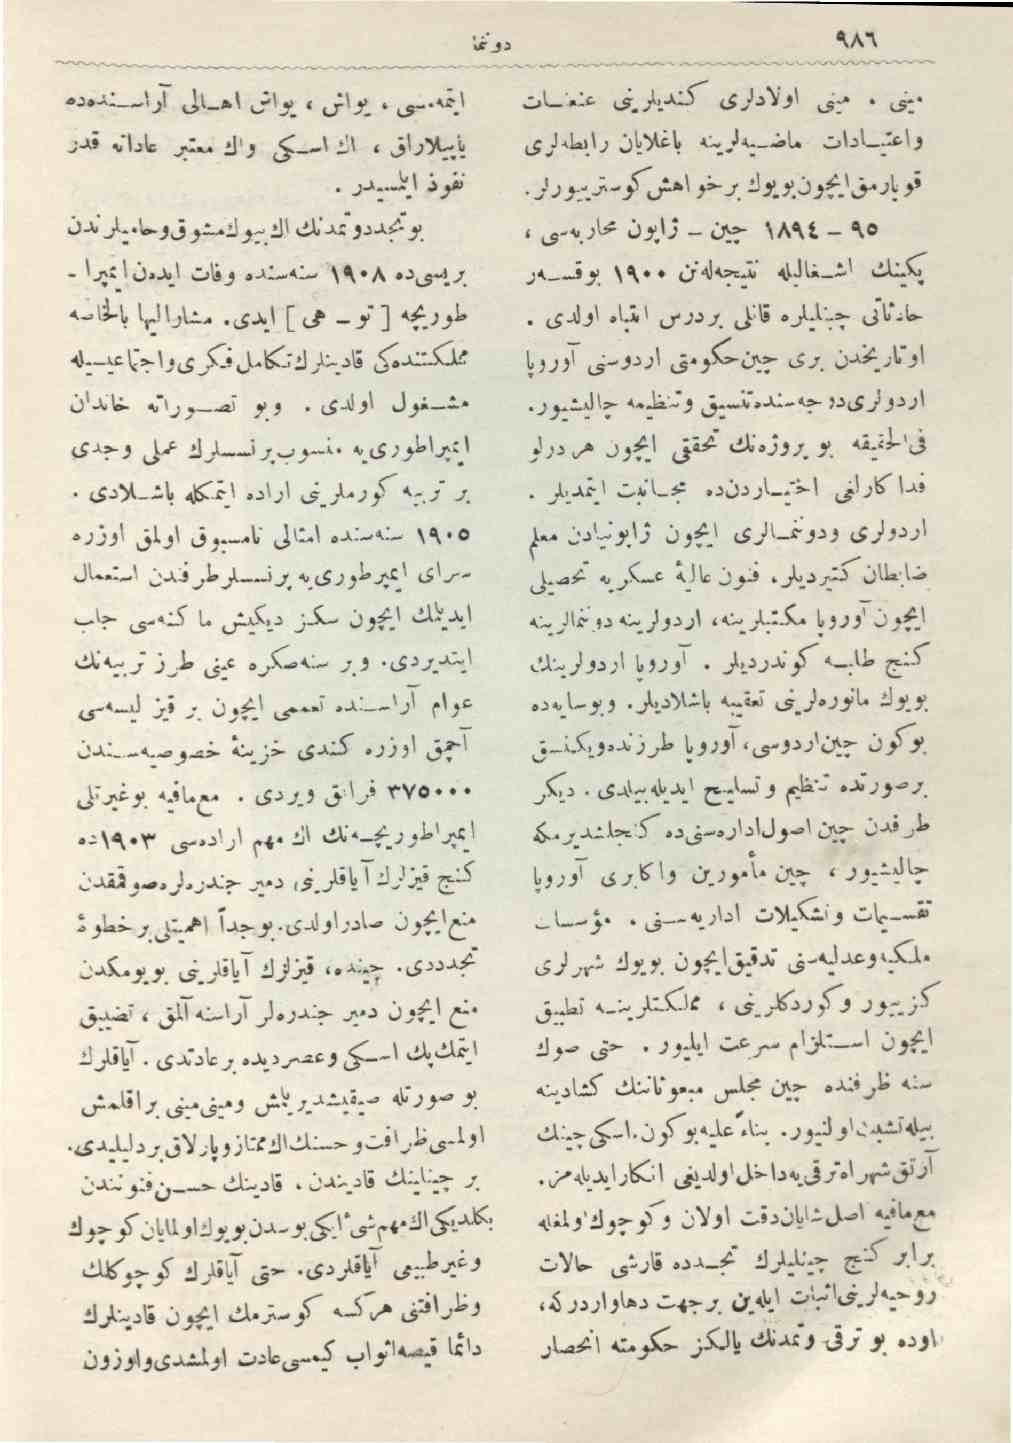 ٩٨٦
دوننما
مینی . مینی اولادلری كندیلرینی عنعنـات
واعتیـادات ماضـیه‌لرینه باغلایان رابطه‌لری
قوپارمق ایچون بویوك بر خواهش كوستریبورلر.
٩٥ - ١٨٩٤ چین - ژاپون محاربه‌سی ،
پكینك اشـغالیله نتیجه‌له‌نن ١٩٠٠ بوقسـه‌ر
حادثاتی چینلیلره قانلی بر درس انتباه اولدی .
او تاریخدن بری چین حكومتی اردوسنی آوروپا
اردولری درجه‌سنده تنسیق وتنظیمه چالیشیور.
فی‌الحقیقه بو پروژه‌نك تحققی ایچون هر درلو
فدا كارلغی اختیـاردن‌ده مجـانبت ایتمدیلر .
اردولری ودوننمـالری ایچون ژاپونیادن معلم
ضابطان كتیردیلر، فنون عالیهٔ عسكریه تحصیلی
ایچون آوروپا مكتبلرینه، اردولرینه دوننمالرینه
كنج طلبـه كوندردیلر . آوروپا اردولرینك
بویوك مانوره‌لرینی تعقیبه باشلادیلر. وبوسایه‌ده
بوكون چین اردوسی، آوروپا طرزنده ویكنسق
برصورتده تنظیم و تسلیـح ایدیله‌بیلدی. دیكر
طرفدن چین اصول اداره‌سنی‌ده كنجلشدیرمكه
چالیشیور ، چین مأمورین واكابری آوروپا
تقسـیمات وتشكیلات اداریه‌سـنی . مؤسسات
ملكیه‌وعدلیه‌سنی تدقیق ایچون بویوك شهرلری
كزییور وكوردكلرینی ، مملكتلرینـه تطبیق
ایچون اسـتلزام سرعت ایلیور . حتی صوك
سنه ظرفنده چین مجلس مبعوثاننك كشادینه
بیله تشبث اولنیور. بناءً علیه بوكون. اسكی چینك
آرتق شهراه ترقی‌یه داخل اولدیغی انكار ایدیله‌مز.
مع‌مافیه اصل شایان دقت اولان وكوچوك اولمغله
برابر كنج چینلیلرك تجـدده قارشی حالات
روحیه‌لرینی اثبات ایله‌ین بر جهت دها واردركه،
اوده بو ترقی وتمدنك یالكز حكومته انحصار
ایتمه‌سی ، یواش ، یواش اهـالی آراسـنده‌ده
یاییلاراق ، اك اسـكی واك معتبر عاداته قدر
نفوذ ایتمسیدر .
بو تجدد وتمدنك اك بیوك مشوق وحامیلرندن
بریسی‌ده ١٩٠٨ سنه‌سنده وفات ایده‌ن ایمپرا -
طوریچه [ تو - هی ] ایدی. مشارالیها بالخاصه
مملكتنده‌كی قادینلرك تكامل فكری واجتماعیسیله
مشـغول اولدی . وبو تصـوراته خاندان
ایمپراطوری‌یه منسوب پرنسسلرك عملی وجدی
بر تربیه كورملرینی اراده ایتمكله باشـلادی .
١٩٠٥ سنه‌سنده امثالی نامسبوق اولمق اوزره
سرای ایمپرطوری‌یه پرنسسلر طرفندن استعمال
ایدیلمك ایچون سكز دیكیش ماكنه‌سی جلب
ایتدیردی. وبر سنه صكره عینی طرز تربیه‌نك
عوام آراسـنده تعممی ایچون بر قیز لیسه‌سی
آچمق اوزره كندی خزینهٔ خصوصیه‌سـندن
٣٧٥٠٠٠ فرانق ویردی . مع‌مافیه بوغیرتلی
ایمپراطوریچـه‌نك اك مهم اراده‌سی ١٩٠٣ ده
كنج قیزلرك آیاقلرینی دمیر جندره‌لره صوقمقدن
منع ایچون صادر اولدی. بو جداً اهمیتلی بر خطوهٔ
تجدددی. چینده، قیزلرك آیاقلرینی بویومكدن
منع ایچون دمیر جندره‌لر آراسنه آلمق ، تضییق
ایتمك پك اسـكی وعصردیده بر عادتدی . آیاقلرك
بو صورتله صیقیشدیریلمش ومینی مینی براقلمش
اولمسی ظرافت وحسنك اك ممتاز وپارلاق بر دلیلیدی.
بر چینلینك قادیندن ، قادینك حسـن فنونندن
بكلدیكی اك مهم شی ایكی بوسدن بویوك اولمایان كوچوك
وغیرطبیعی آیاقلردی. حتی آیاقلرك كوچوكلك
وظرافتنی هركسه كوسترمك ایچون قادینلرك
دائما قیصه اثواب كیمسی عادت اولمشدی واوزون